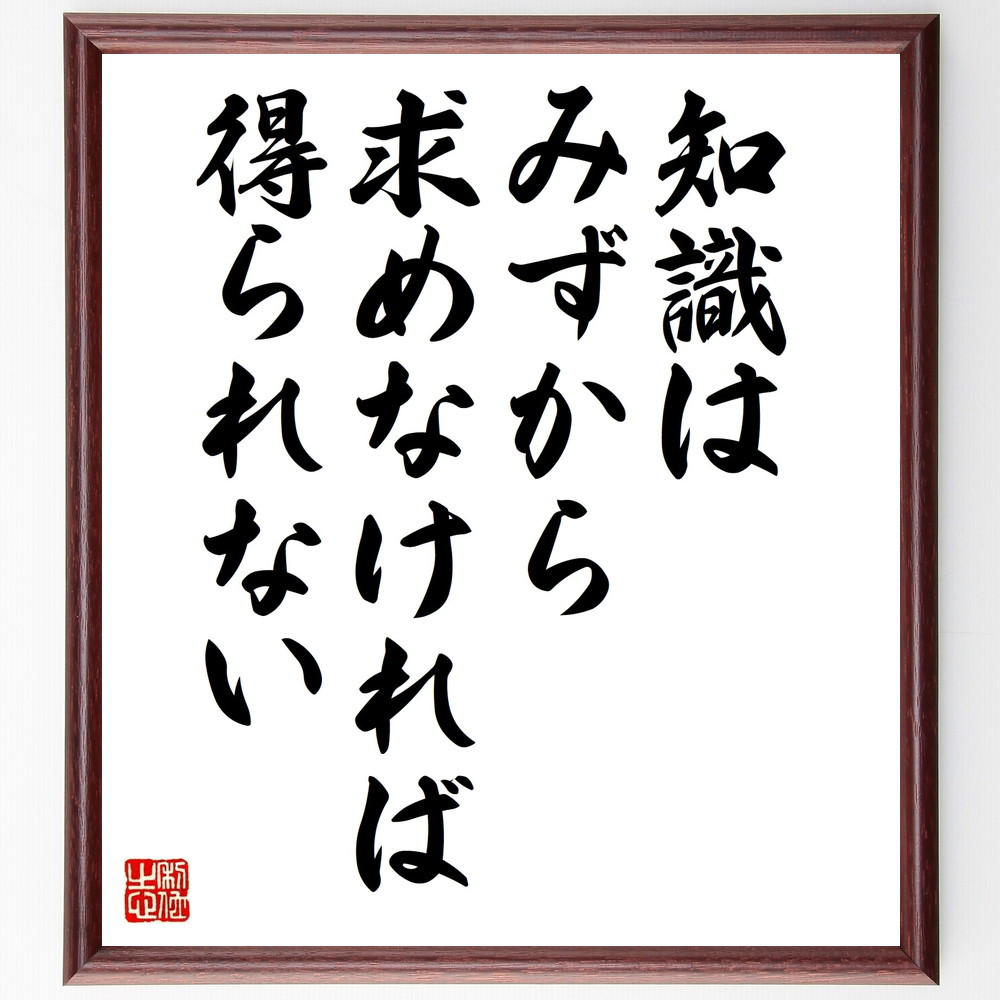 知識は
みずから
求めなければ
得られない